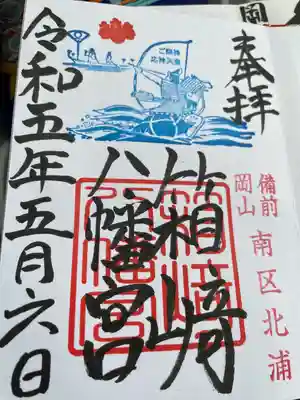 奉拝
備前
岡山
南区北浦
箱崎
八幡宮
令和五年五月六日
ご祭神